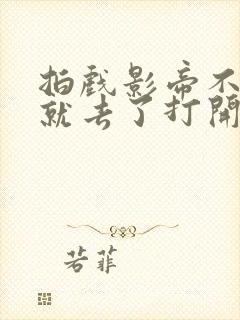 拍戏影帝不
就去了打開
若菲